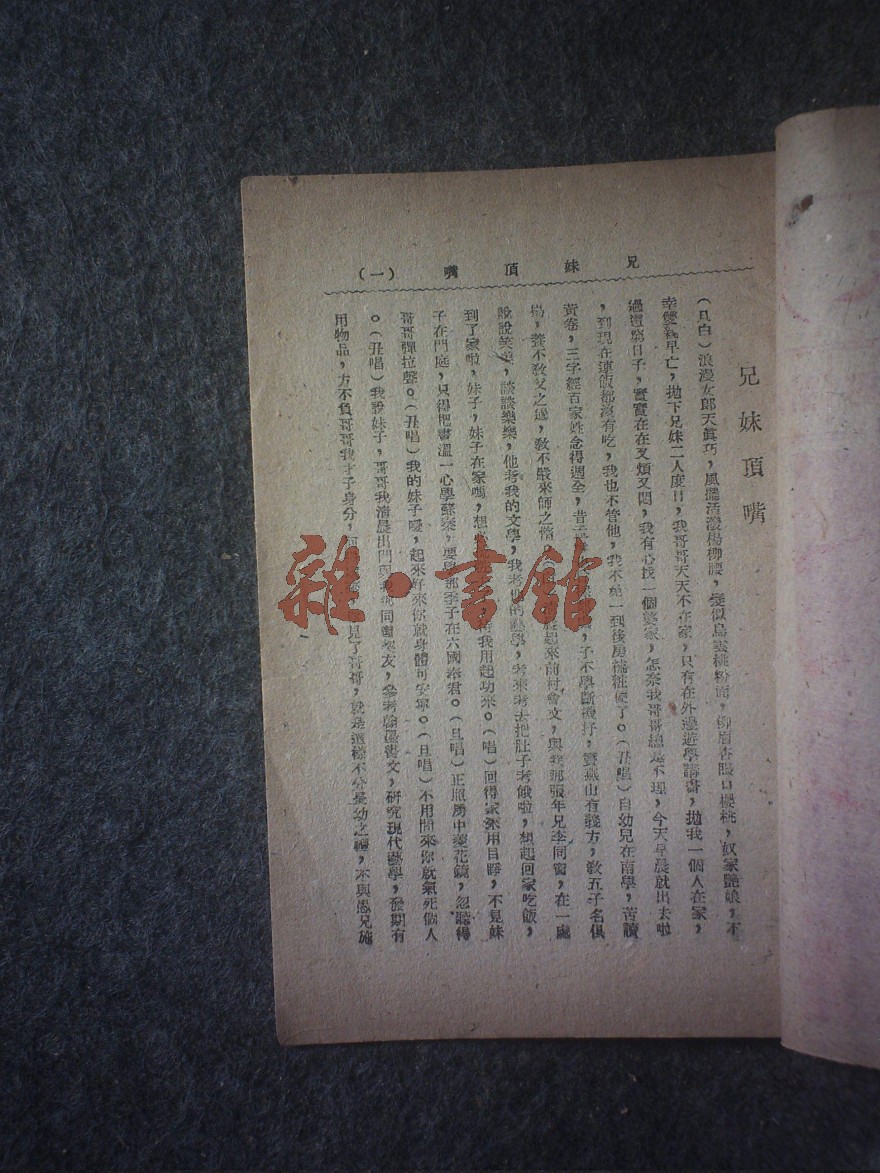 兄妹頂嘴（一）
兄妹頂嘴
（旦白）浪漫女郎天眞巧，風擺活潑楊柳腰，鬢似烏雲桃粉面，柳眉杏眼口櫻桃，奴家艶娘，不
幸雙親早亡，拋下兄妹二人度日，我哥哥天天不在家，只有在外邊遊學講書，拋我一個人在家，
過這窮日子，實實在在又煩又悶，我有心找一個婆家，怎奈我哥哥總是不理，今天早晨就出去啦
，到現在連飯都沒有吃，我也不管他，我不免一到後房梳粧便了。（丑唱）自幼兒在南學，苦讀
黃卷，三字經百家姓念得週全，昔孟子不學斷機杼，竇燕山有義方，敎五子名俱
揚，養不敎父之過，敎不嚴來師之惰起來前村會文，與我那張年兄李同窗，在一處
說說笑笑，談談樂樂，他考我的文學，我考他的藝學，考來考去把肚子考餓啦，想起回家吃飯，
到了家啦，妹子，妹子在家嗎，想我用起功來。（唱）回得家來用目睜，不見妹
子在門庭，只得把書溫一心學蘇秦，要學那季子在六國奉君。（旦唱）正照房中菱花鏡，忽聽得
哥哥彈拉聲。（丑唱）我的妹子噯，起來好來你就身體可安寧。（旦唱）不用問來你就氣死個人
。（丑唱）我說妹子，哥哥我清晨出門與同窗好友，參考翰墨書文，研究現代藝學，發明有
用物品，方不負哥哥我才子身分，見了哥哥，就是這樣不分長幼之禮，不與愚兄施
一
雜·書館